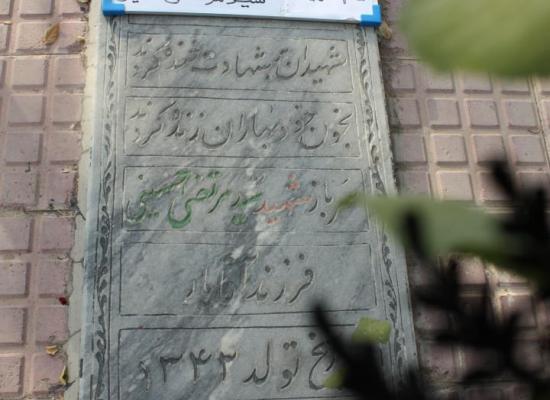 شهیدان بشهادت خنده کردند
بخون خود بهاران زنده کردند
سرباز شهید سید مرتضی حسینی
فرزند آقایار
تولد ۱۳۴۳